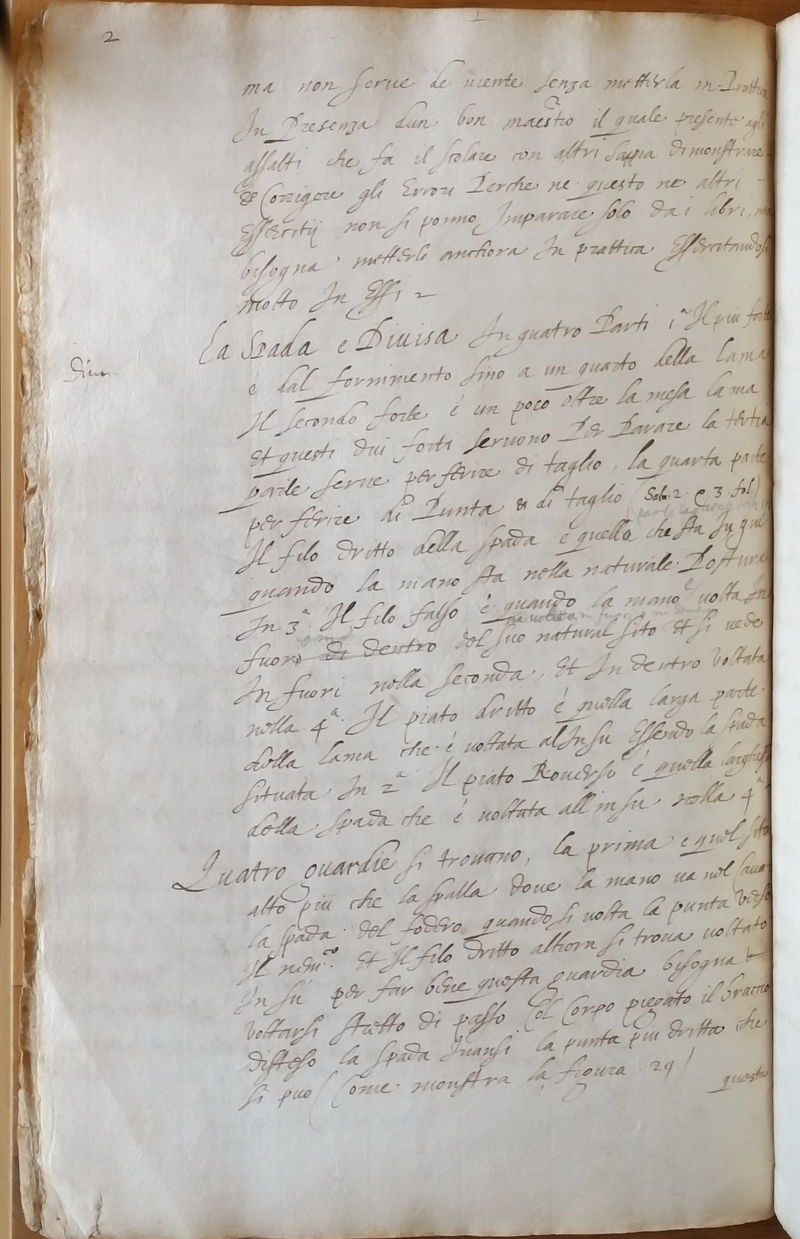 2
ma non serue de niente senza metterla in Prattica
In Presenza dun bon maestro il quale presente agli
assalti che fa il scolare con altri Sappia dimonstrare
et Corrigere gli Errori Perche ne questo ne altri
Essercitij non si ponno Imparare solo dai libri, ma
bisogna metterli anchora In prattica Essercitandosi
molto In Essi
La Spada e Diuisa In quatro Parti 1.ª Il piu forte
è dal fornimento sino a un quarto della Lama
Il secondo forte è un poco oltre la mesa lama
Et questi dui forti seruono Per Parare la tertia
parte serue per ferire di taglio, la quarta parte
per ferire di Punta et di taglio (2 e 3 fol)
Il filo dritto della spada e quello che sta In giu
quando la mano sta nella naturale Postura
In 3.ª Il filo falso è quando la mano uolta In
fuori di dentro del suo natural sito Et si vede
In fuori nella seconda, Et In dentro Voltata
nella 4.ª Il piato dritto è quella larga parte
della lama che è uoltata al In su Essendo la spada
situata In 2.ª Il piato Rouerso è quella larghessa
della spada che è uoltata all'insu nella 4.ª
Quatro guardie si trouano, la prima e quel sito
alto piu che la spalla doue la mano ua nel cauar
la spada del fodero quando si uolta la punta verso
Il nem.co Et Il filo dritto alhora si troua uoltato
In sù per far bene questa guardia bisogna
uoltarsi stretto di passo Col Corpo piegato il braccio
disteso la spada Inansi la punta piu dritta che
si puo (Come monstra la figura 29)
questa